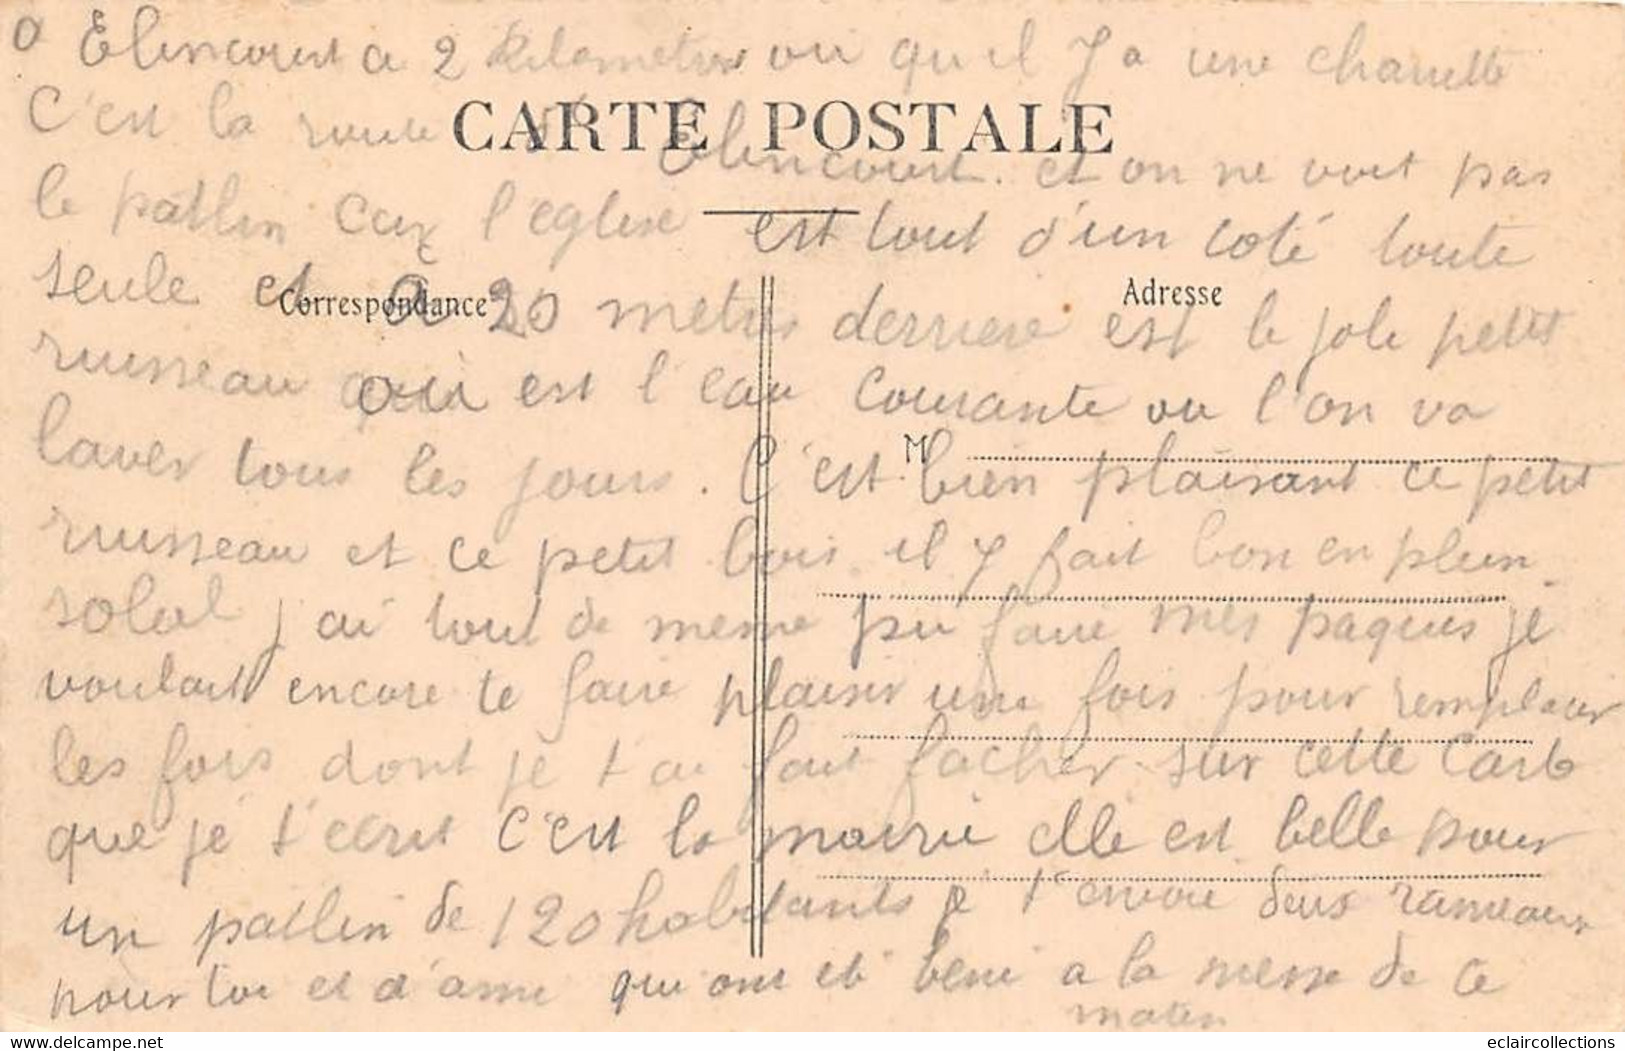 a Elincourt a 2 kilometres ou qu il y a une charrette
C'est la route d' Elincourt. et on ne voit pas
CARTE POSTALE
le patlin car l'eglise est tout d'un coté toute
seule et a 20 metres derriere est le joli petit
Correspondance
Adresse
ruisseau qui est l'eau courante ou l'on va
laver tous les jours. C'est bien plaisant ce petit
M
ruisseau et ce petit bois il y fait bon en plein
soleil j'ai tout de meme pu faire mes paques je
voulait encore te faire plaisir une fois pour remplacer
les fois dont je t'ai fait facher sur cette carte
que je t'ecrit c'est la mairie elle est belle pour
un patlin de 120 habitants je t'envoie deux rameaux
pour toi et d'ame qui ont eté beni a la messe de ce
matin
eclaircollections